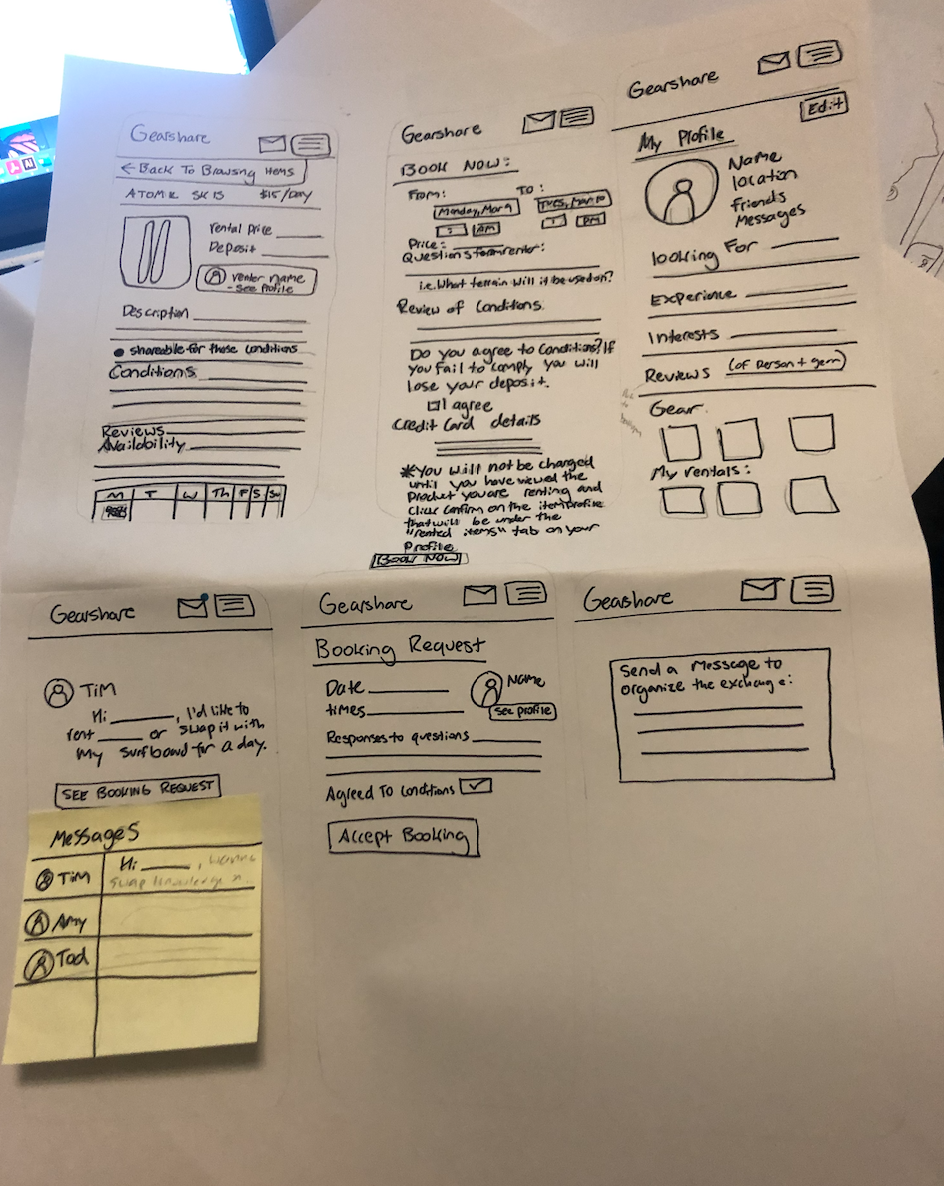 Gearshare
← Back To Browsing Items
ATOMIC SKIS $15/DAY
rental Price
Deposit
renter name
- see Profile
Description
shareable for these conditions
Conditions
Reviews
Availability
M T W Th F S Su
Gearshare
BOOK NOW:
From: To:
Monday, Mar 9 Tues, Mar 10
: AM : PM
Price:
Questions from renter:
i.e. What terrain will it be used on?
Review of Conditions.
Do you agree to conditions? If
you fail to comply you will
lose your deposit.
I agree
Credit Card details
*You will not be charged
until you have viewed the
Product you are renting and
click confirm on the item profile
that will be under the
"rented items" tab on your
Profile
BOOK NOW
Gearshare
Edit
My Profile
Name
location
friends
Messages
looking For
Experience
Interests
Reviews (of Person + gear)
Gear
My rentals:
Gearshare
TIM
Hi ______, I'd like to
rent ______ or swap it with
my surfboard for a day.
SEE BOOKING REQUEST
Messages
TIM
Hi ______, wanna
swap
Amy
Tad
Gearshare
Booking Request
Date
times
Name
See profile
Responses to questions
Agreed To Conditions
Accept Booking
Geashare
Send a Message to
organize the exchange: